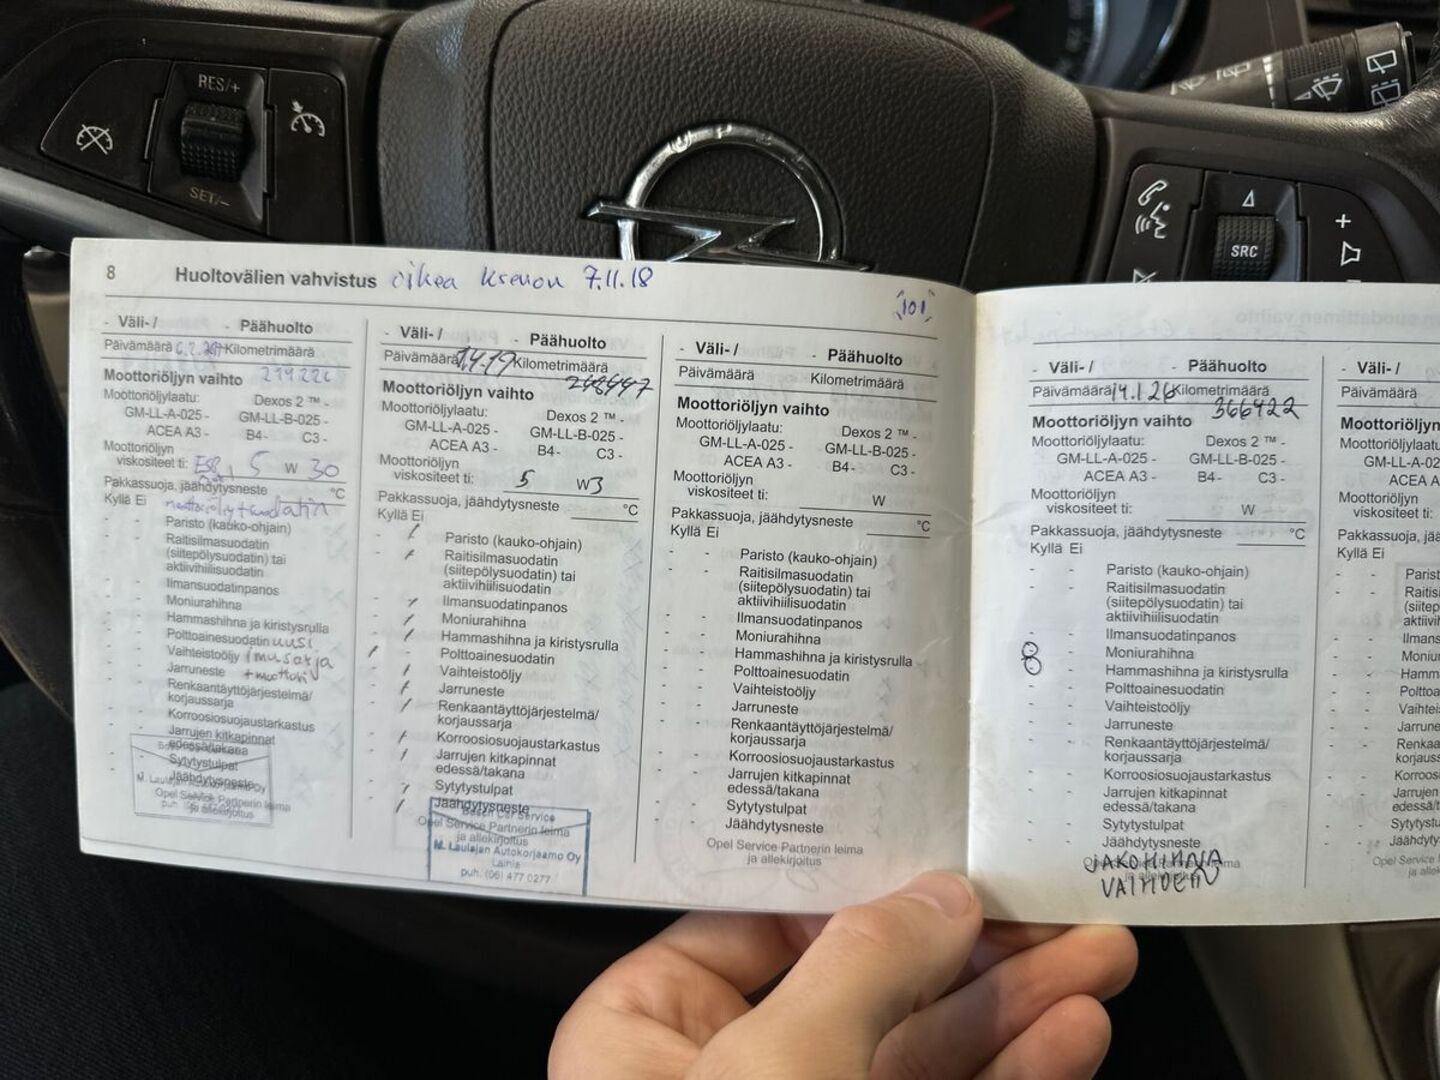 RES/+
SET/-
SRC
+
8 Huoltovälien vahvistus oikea ksenon 7.11.18
101
- Väli- / - Päähuolto
Päivämäärä Kilometrimäärä
Moottoriöljyn vaihto
Moottoriöljylaatu: Dexos 2 ™ -
GM-LL-A-025 - GM-LL-B-025 -
ACEA A3 - B4 - C3 -
Moottoriöljyn
viskositeet ti: 5 W 30
Pakkassuoja, jäähdytysneste °C
Kyllä Ei
- - Paristo (kauko-ohjain)
- - Raitisilmasuodatin
(siitepölysuodatin) tai
aktiivihiilisuodatin
- - Ilmansuodatinpanos
- - Moniurahihna
- - Hammashihna ja kiristysrulla
- - Polttoainesuodatin uusi
- - Vaihteistoöljy
- - Jarruneste
- - Renkaantäyttöjärjestelmä/
korjaussarja
- - Korroosiosuojaustarkastus
- - Jarrujen kitkapinnat
edessä/takana
- - Sytytystulpat
- - Jäähdytysneste
M. Laulajan Autokorjaamo Oy
Opel Service Partnerin leima
ja allekirjoitus
- Väli- / - Päähuolto
Päivämäärä Kilometrimäärä
248447
Moottoriöljyn vaihto
Moottoriöljylaatu: Dexos 2 ™ -
GM-LL-A-025 - GM-LL-B-025 -
ACEA A3 - B4 - C3 -
Moottoriöljyn
viskositeet ti: 5 W3
Pakkassuoja, jäähdytysneste °C
Kyllä Ei
Paristo (kauko-ohjain)
Raitisilmasuodatin
(siitepölysuodatin) tai
aktiivihiilisuodatin
Ilmansuodatinpanos
Moniurahihna
Hammashihna ja kiristysrulla
Polttoainesuodatin
Vaihteistoöljy
Jarruneste
Renkaantäyttöjärjestelmä/
korjaussarja
Korroosiosuojaustarkastus
Jarrujen kitkapinnat
edessä/takana
Sytytystulpat
Jäähdytysneste
Bosch Car Service
Opel Service Partnerin leima
ja allekirjoitus
M. Laulajan Autokorjaamo Oy
Laihia
puh. (06) 477 0277
- Väli- / - Päähuolto
Päivämäärä Kilometrimäärä
Moottoriöljyn vaihto
Moottoriöljylaatu: Dexos 2 ™ -
GM-LL-A-025 - GM-LL-B-025 -
ACEA A3 - B4 - C3 -
Moottoriöljyn
viskositeet ti: W
Pakkassuoja, jäähdytysneste °C
Kyllä Ei
- - Paristo (kauko-ohjain)
- - Raitisilmasuodatin
(siitepölysuodatin) tai
aktiivihiilisuodatin
- - Ilmansuodatinpanos
- - Moniurahihna
- - Hammashihna ja kiristysrulla
- - Polttoainesuodatin
- - Vaihteistoöljy
- - Jarruneste
- - Renkaantäyttöjärjestelmä/
korjaussarja
- - Korroosiosuojaustarkastus
- - Jarrujen kitkapinnat
edessä/takana
- - Sytytystulpat
- - Jäähdytysneste
Opel Service Partnerin leima
ja allekirjoitus
- Väli- / - Päähuolto
Päivämäärä 14.1.26 Kilometrimäärä
366422
Moottoriöljyn vaihto
Moottoriöljylaatu: Dexos 2 ™ -
GM-LL-A-025 - GM-LL-B-025 -
ACEA A3 - B4 - C3 -
Moottoriöljyn
viskositeet ti: W
Pakkassuoja, jäähdytysneste °C
Kyllä Ei
- - Paristo (kauko-ohjain)
- - Raitisilmasuodatin
(siitepölysuodatin) tai
aktiivihiilisuodatin
- - Ilmansuodatinpanos
- - Moniurahihna
- - Hammashihna ja kiristysrulla
- - Polttoainesuodatin
- - Vaihteistoöljy
- - Jarruneste
- - Renkaantäyttöjärjestelmä/
korjaussarja
- - Korroosiosuojaustarkastus
- - Jarrujen kitkapinnat
edessä/takana
- - Sytytystulpat
- - Jäähdytysneste
JAKOHIHNA
- Väli- /
Päivämäärä
Moottoriöljyn
Moottoriöljylaatu
GM-LL-A-02
ACEA A
Moottoriöljyn
viskositeet ti:
Pakkassuoja, jää
Kyllä Ei